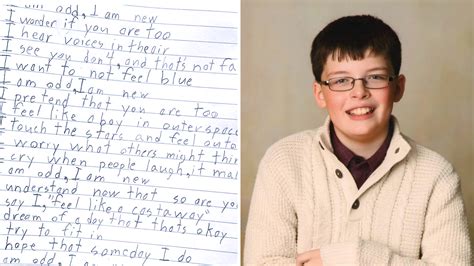 am odd, I am new
I wonder if you are too
I hear voices in the air
I see you don't, and thats not fa
I want to not feel blue
am odd, I am new
I pretend that you are too
feel like a boy in outerspac
touch the stars and feel out o
worry what others might thin
cry when people laugh, it ma
am odd, I am new
understand now that so are yo
say I, "feel like a castaway"
dream of a day that thats okay
try to fit in
hope that someday I do
am odd, I am